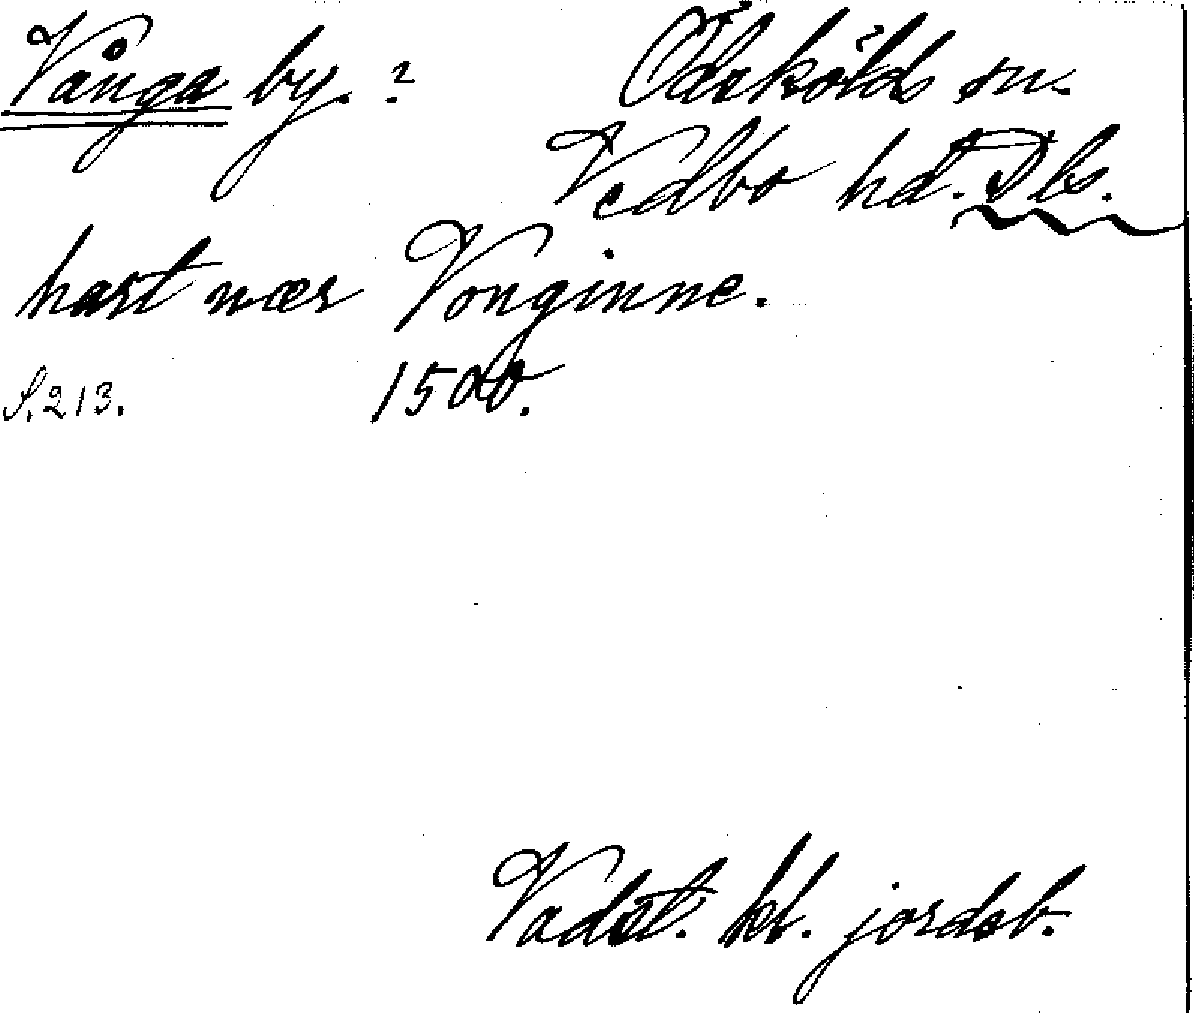 Vånga by. ? Ödskölds sn.
Vedbo hd. Dls.
hart nær Vonginne.
S. 213. 1500.
Vadst. kl. jordeb.